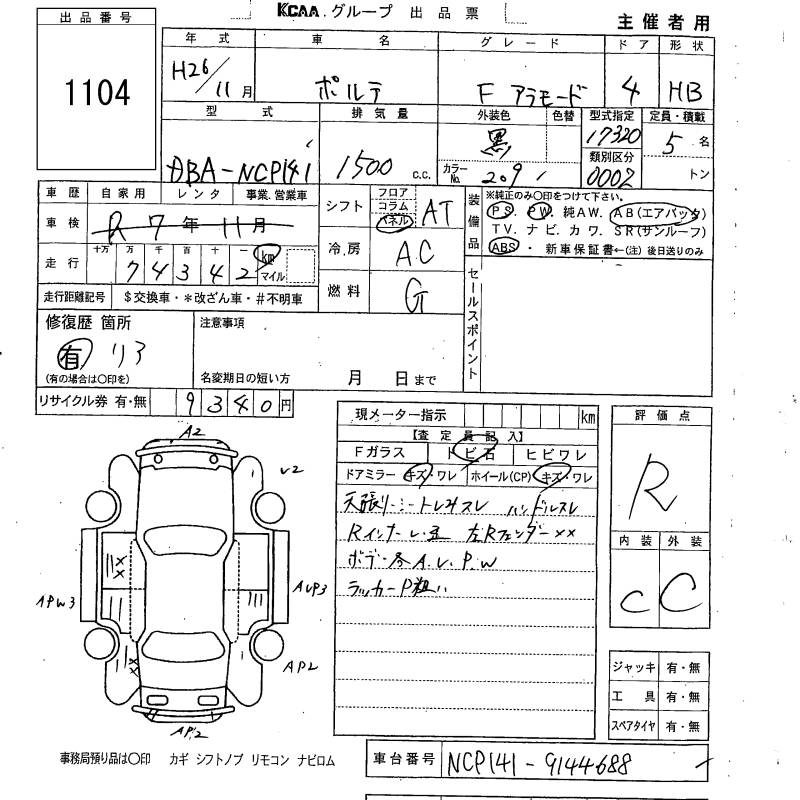 KCAA グループ 出品票
主催者用
出品番号
1104
年式 車名 グレード ドア 形状
H26/11月 ポルテ F アラモード 4 HB
型式 排気量 外装色 色替 型式指定 定員・積載
DBA-NCP141 1500 c.c. 黒 17320 5名
カラーNo. 209 類別区分 0002 トン
車歴 自家用 レンタ 事業.営業車
車検 R7年11月
走行 十万 万 千 百 十 一 km マイル
74342
走行距離記号 $交換車・*改ざん車・#不明車
シフト フロア コラム パネル AT
冷房 AC
燃料 G
装備品 ※純正のみ〇印をつけて下さい。
PS. PW. 純AW. AB(エアバッグ)
TV. ナビ. カワ. SR(サンルーフ)
ABS・ 新車保証書←(注) 後日送りのみ
セールスポイント
修復歴 箇所
有 リア
(有の場合は〇印を)
注意事項
名変期日の短い方 月 日まで
リサイクル券 有・無 9340円
現メーター指示 km
【査定員記入】
Fガラス トビ石 ヒビワレ
ドアミラー キズ・ワレ ホイール(CP) キズ・ワレ
天張リ シートレスレ ハンドルスレ
Rインナー 左Rフェンダーxx
ボデー各A.U.P.W
ラッカーP粗い
評価点
R
内装 外装
C C
ジャッキ 有・無
工具 有・無
スペアタイヤ 有・無
A2
U2
AUP3
APW3
AP2
AP2
事務局預り品は〇印 カギ シフトノブ リモコン ナビロム
車台番号 NCP141-9144688